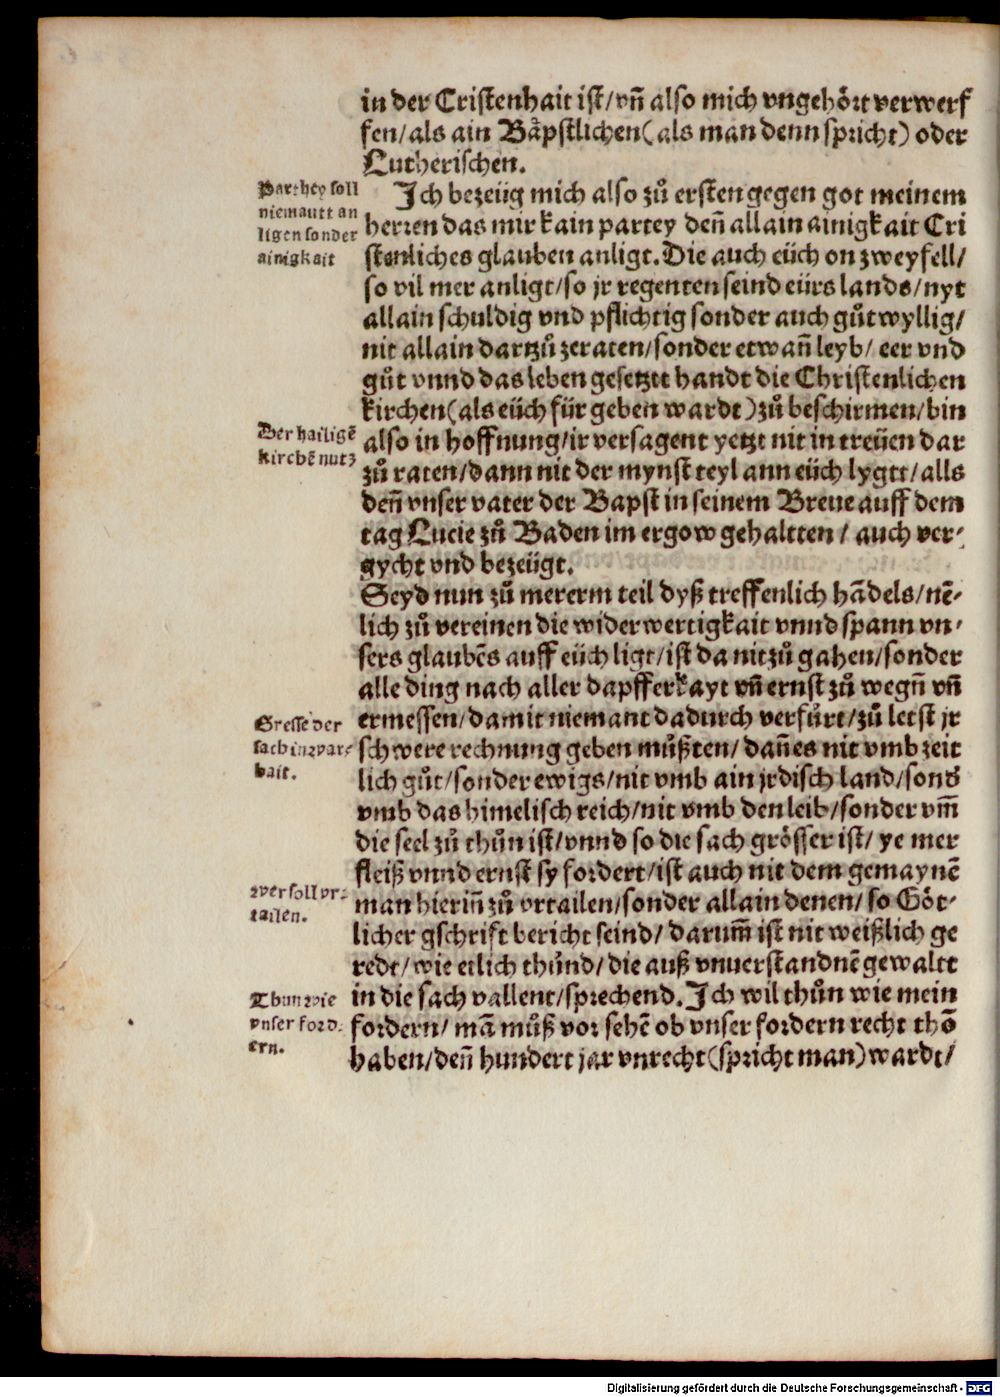 in der Cristenhait ist/vn̄ also mich vngehört verwerf
fen/als ain Bäpstlichen(als man denn spricht) oder
Lutherischen.
Parthey soll
niemantt an
ligen sonder
ainigkait
Ich bezeüg mich also zů ersten gegen got meinem
herren das mir kain partey den̄ allain ainigkait Cri
stenliches glauben anligt. Die auch eüch on zweyfell/
so vil mer anligt/so jr regenten seind eürs lands/nyt
allain schuldig vnd pflichtig sonder auch gůtwyllig/
nit allain dartzů zeraten/sonder etwan̄ leyb/ eer vnd
gůt vnnd das leben gesetztt handt die Christenlichen
kirchen(als eüch für geben wardt)zů beschirmen/bin
Der hailigē
kirchē nutz
also in hoffnung/ir versagent yetzt nit in treüen dar
zů raten/dann nit der mynst teyl ann eüch lygtt/alls
den̄ vnser vater der Bapst in seinem Breue auff dem
tag Lucie zů Baden im ergow gehaltten / auch ver-
gycht vnd bezeügt.
Seyd nun zů mererm teil dyß treffenlich hādels/nē-
lich zů vereinen die widerwertigkait vnnd spann vn-
sers glaubēs auff eüch ligt/ist da nit zů gahen/sonder
alle ding nach aller dapfferkayt vn̄ ernst zů wegn̄ vn̄
Grösse der
sach in zwar-
hait.
ermessen/damit niemant dadurch verfürt/zů letst jr
schwere rechnung geben müßten/ dan̄ es nit vmb zeit
lich gůt/sonder ewigs/nit vmb ain jrdisch land/sond̄
vmb das himelisch reich/nit vmb den leib/sonder vm̄
die seel zů thůn ist/vnnd so die sach grösser ist/ ye mer
fleiß vnnd ernst sy fordert/ist auch nit dem gemaynē
Wer soll vr-
tailen.
man hierin̄ zů vrtailen/sonder allain denen/ so Göt-
licher gschrift bericht seind/ darum̄ ist nit weißlich ge
redt/wie etlich thůnd/die auß vnuerstandnē gewaltt
Thun wie
vnser ford-
ern.
in die sach vallent/sprechend. Ich wil thůn wie mein
fordern/ mā můß vor sehē ob vnser fordern recht thō
haben/den̄ hundert jar vnrecht(spricht man)wardt/
Digitalisierung gefördert durch die Deutsche Forschungsgemeinschaft - DFG